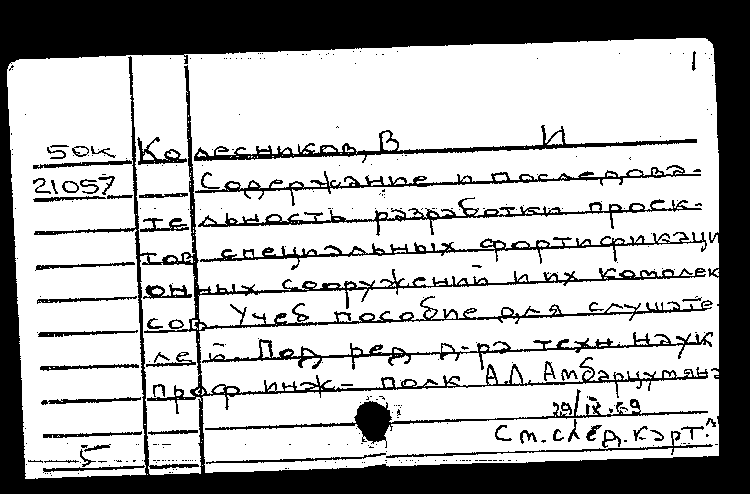 1
50К Колесников, В И
21057 Содержание и последова-
тельность разработки проек-
тов специальных фортификаци
онных сооружений и их комплек
сов Учеб пособие для слушате-
лей. Под ред д-ра техн. наук
проф инж- полк А.Л. Амбарцумяна
29/IX.69
5 См. след. карт.